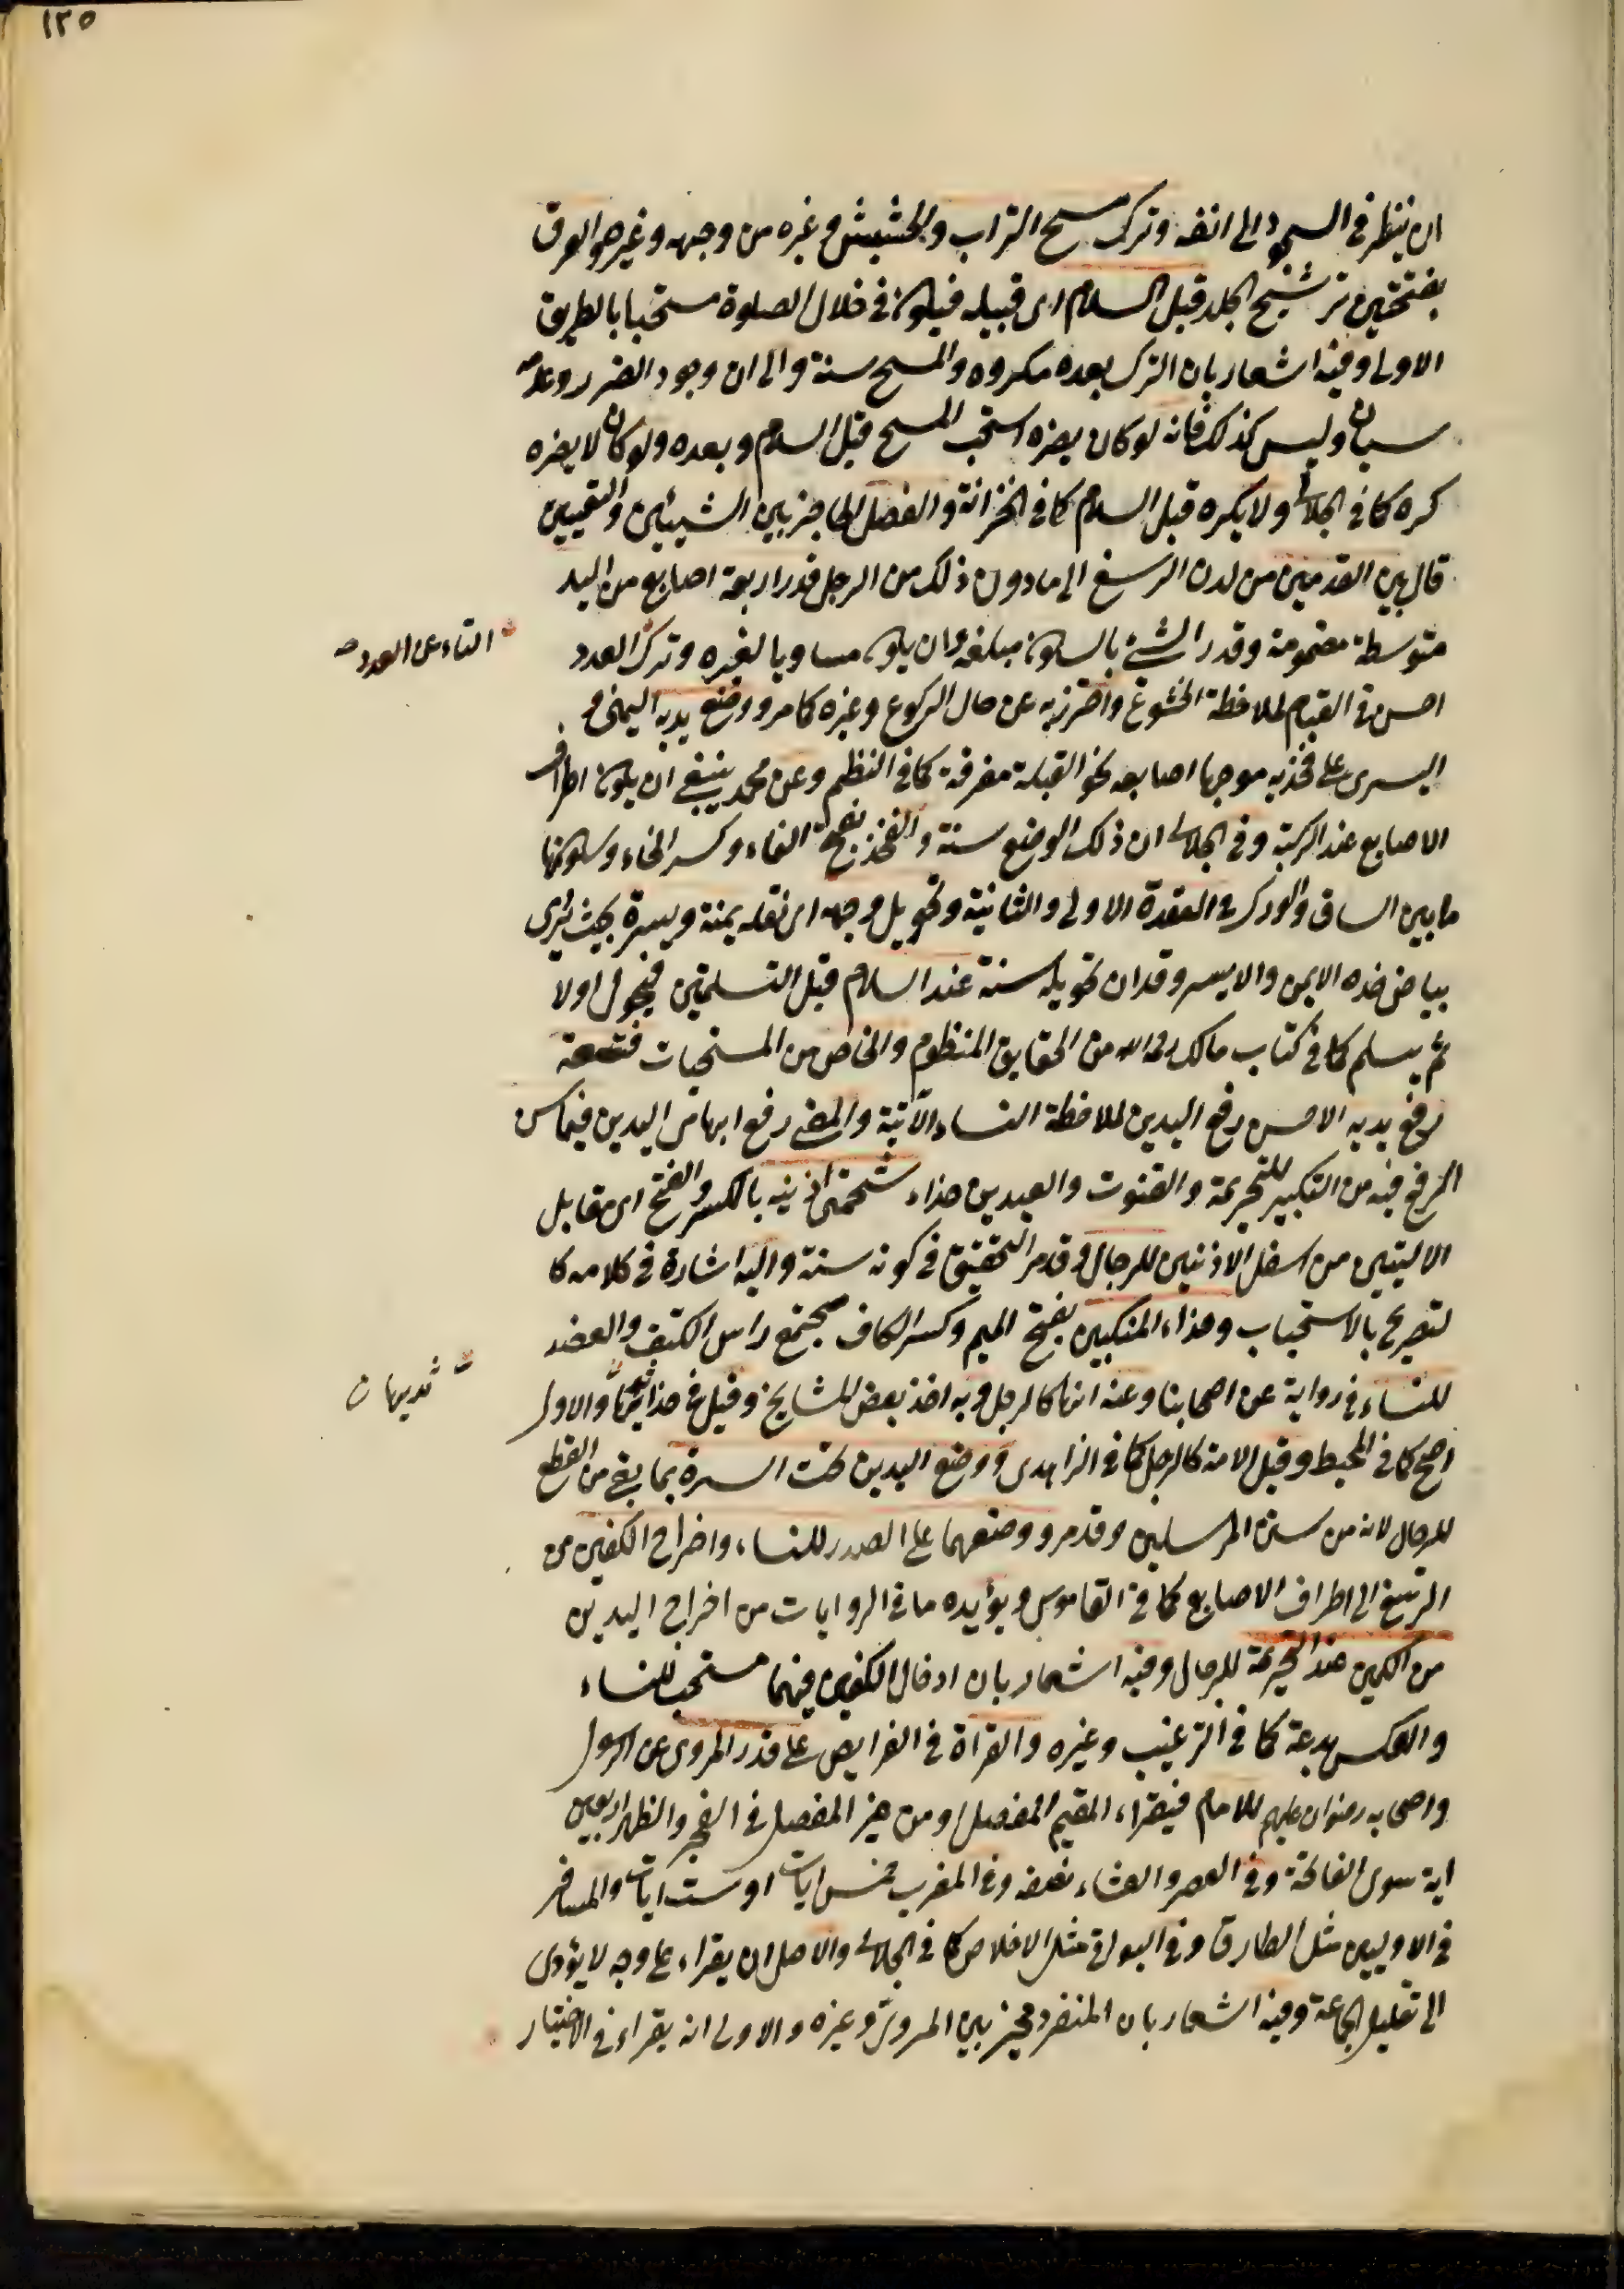 ١٢٥
ان ينظر فى السجود الى انفه وترك مسح التراب والحشيش وغيره من وجهه وغيره والعرق
بفتحتين ترشيح الجلد قبل السلام اى قبيله فيكون فى خلال الصلوة مستحبا بالطريق
الاولى وفيه اشعار بان الترك بعده مكروه والمسح سنة والى ان وجود الضرر وعدمه
سيان وليس كذلك فانه لو كان يضره استحب المسح قبل السلام وبعده ولو كان لا يضره
كره كما فى الجلابى ولا يكره قبل السلام كما فى الخزانة والفصل الحاجز بين الشيئين والتعيين
قال بين القدمين من لدن الرسغ الى ما دون ذلك من الرجل قدر اربعة اصابع من اليد
متوسطة مضمومة وقدر الشئ بالسكون مبلغه وان يكون مساويا لغيره وترك العدد
التاء عن العدد صح
احسن فى القيام لملاحظة الخشوع واحترز به عن حال الركوع وغيره كما مر ووضع يديه اليمنى و
اليسرى على فخذيه موجها اصابعه نحو القبلة مفرقة كما فى النظم وعن محمد ينبغى ان يكون اطراف
الاصابع عند الركبة وفى الجلابى ان ذلك الوضع سنة والفخذ بفتح الفاء وكسر الخاء وسكونها
ما بين الساق والورك فى القعدة الاولى والثانية وتحويل وجهه اى نقله يمنة ويسرة بحيث يرى
بياض خده الايمن والايسر وقد ان تحويله سنة عند السلام قبل التسلمتين فيحول اولا
ثم يسلم كما فى كتاب مالك رحمه الله من الحقايق المنظوم والخاص من المستحبات فتسعة
رفع يديه الاحسن رفع اليدين لملاحظة النساء الآتية والمعنى رفع ابهامى اليدين فيما سن
الرفع فيه من التكبير للتحريمة والقنوت والعيدين حذاء شحمتى اذنيه بالكسر والفتح اى مقابل
الاليتين من اسفل الاذنين للرجال وقد مر التحقيق فى كونه سنة واليه اشارة فى كلامه كما
لتصريح بالاستحباب وحذاء المنكبين بفتح الميم وكسر الكاف مجتمع راس الكتف والعضد
للنساء فى رواية عن اصحابنا وعنه انها كالرجل وبه اخذ بعض المشايخ وقيل فى حذاء ثدييها والاول
ثدييها ن
اصح كما فى المحيط وقيل الامة كالرجل كما فى الزاهدى ووضع اليدين تحت السرة بما بقى من القطع
للرجال لانه من سنن المرسلين وقد مر ووضعهما على الصدر للنساء واخراج الكفين من
الرسغ الى اطراف الاصابع كما فى القاموس ويؤيده ما فى الروايات من اخراج اليدين
من الكمين عند التحريمة للرجال وفيه اشعار بان ادخال الكفين فيهما مستحب للنساء
والعكس بدعة كما فى الترغيب وغيره والقراة فى الفرايض على قدر المروى عن الرسول
واصحابه رضوان عليهم للامام فيقراء المقيم المفصل او من غير المفصل فى الفجر والظهر اربعين
اية سوى الفاتحة وفى العصر والعشاء نصفه وفى المغرب خمس ايات او ست ايات والمسافر
فى الاوليين مثل الطارق وفى البواقى مثل الاخلاص كما فى الجلابى والاصل ان يقراء على وجه لا يؤدى
الى تقليل الجماعة وفيه اشعار بان المنفرد مخير بين المروى وغيره والاولى انه يقراء فى الاختيار